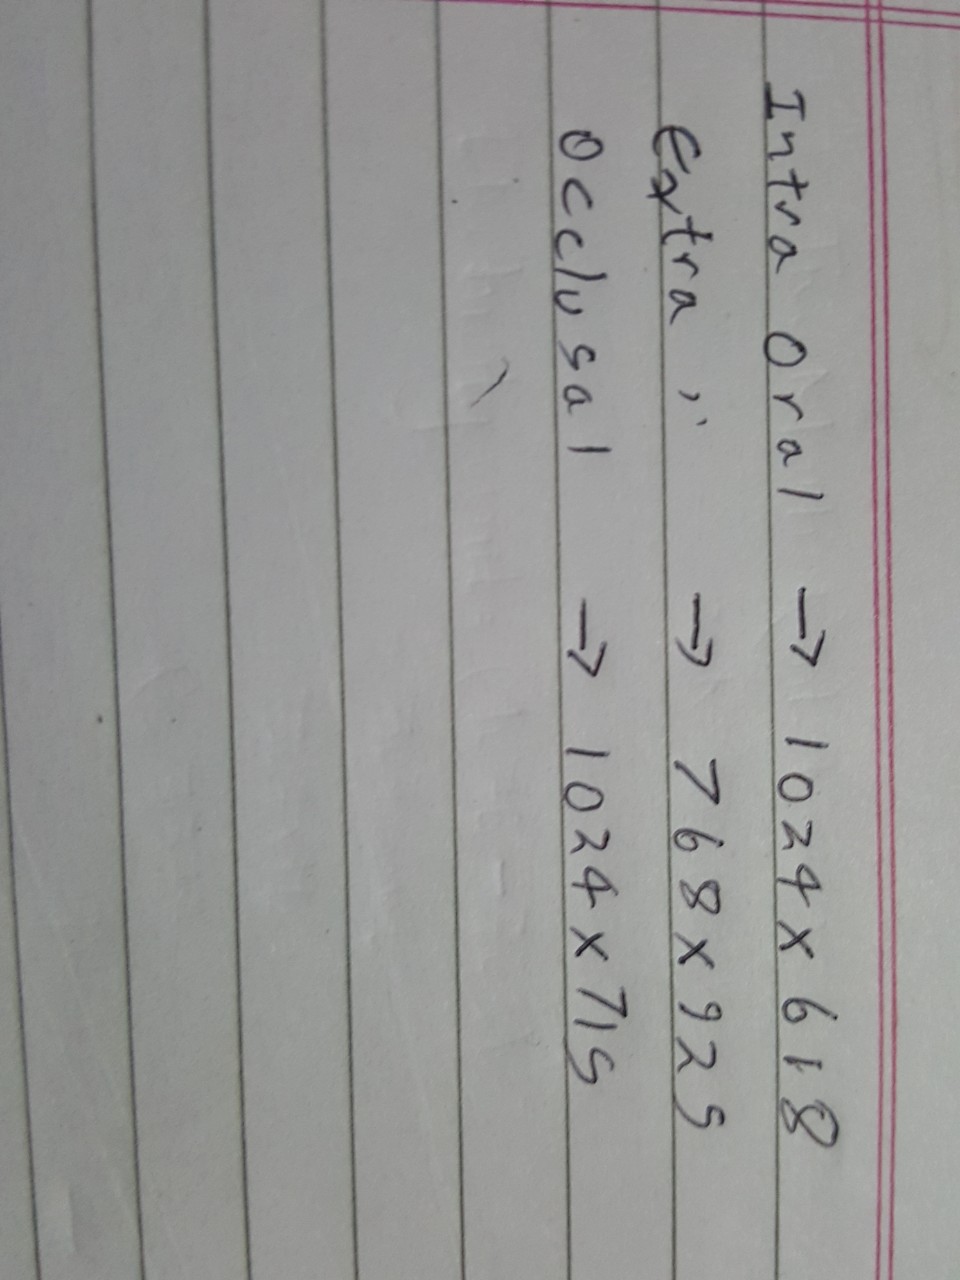 Intra Oral → 1024 x 618
Extra ,, → 768 x 925
Occlusal → 1024 x 715